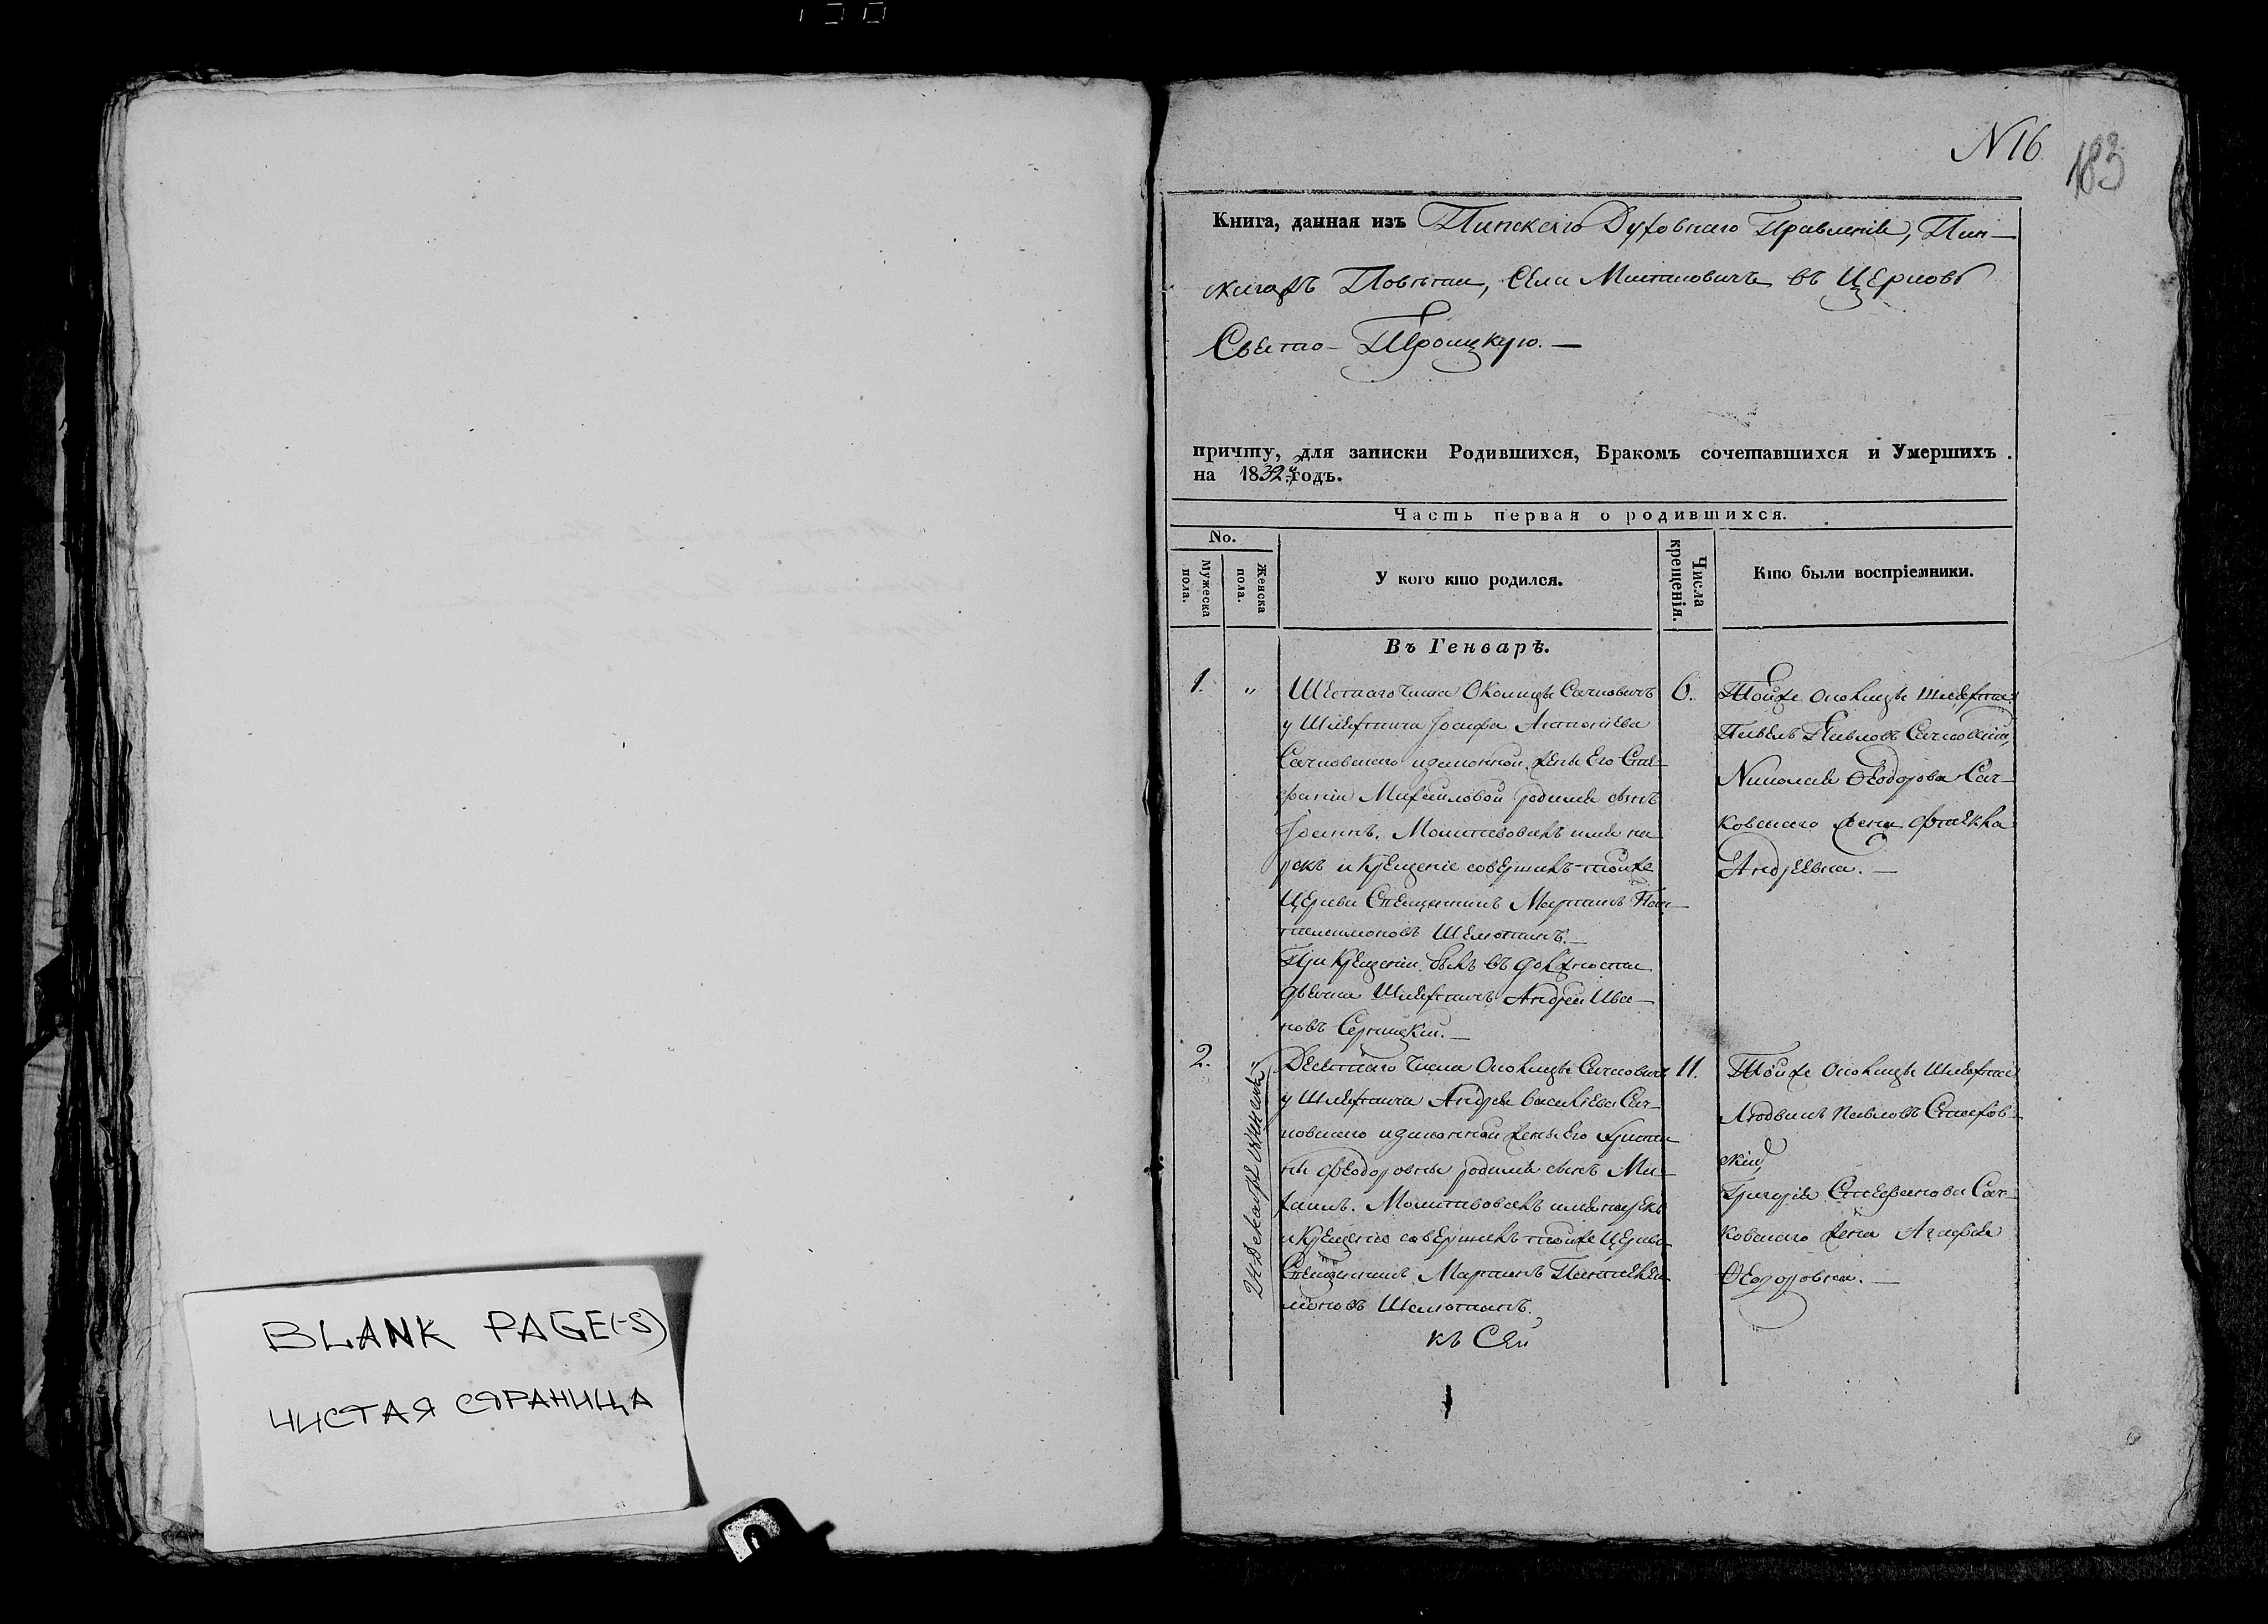 N 16
183
Книга, данная изъ Пинскаго Духовнаго Правленія, Пин-
скаго Повѣта, Села въ Церковь
Свято-Троицкую. —
причту, для записки Родившихся, Бракомъ сочетавшихся и Умершихъ
на 1832й годъ.
Часть первая о родившихся.
No.
Мужеска пола.
Женска пола.
У кого кто родился.
Числа крещенія.
Кто были воспріемники.
Въ Генварѣ.
1.
"
Шестаго числа Околицы Сачковичъ
у Шляхтича Іосифа Антоніева
Сачковскаго и законной жены Его Сте-
фаніи Михайловой родился сынъ
Молитвовалъ имя на
рекъ и Крещеніе совершилъ тойже
Церкви Священникъ Мартинъ Пан-
телеимоновъ
При Крещеніи былъ въ должности
дьячка Шляхтичъ Андрей Ива-
новъ Серницкій. —
6.
Тойже околицы Шляхтич
Павелъ Павловъ Сачковскій,
Николая Ѳеодорова Сач-
ковскаго жена Ѳекла
Андреевна. —
2.
"
Десятаго числа Околицы Сачковичъ
у Шляхтича Андрея Василіева Сач-
ковскаго и законной жены Его Христи
ны Ѳеодоровны родился сынъ Ми-
хаилъ. Молитвовалъ имя нарекъ
и Крещеніе совершилъ тойже Церкви
Священникъ Мартинъ Пантелеи
моновъ
къ Сей
11.
Тойже околицы Шляхтич
Людвикъ Павловъ
скій,
Григорія Стефанова Сач-
ковскаго жена Агафія
Ѳеодоровна. —
BLANK PAGE(-S)
ЧИСТАЯ СТРАНИЦА